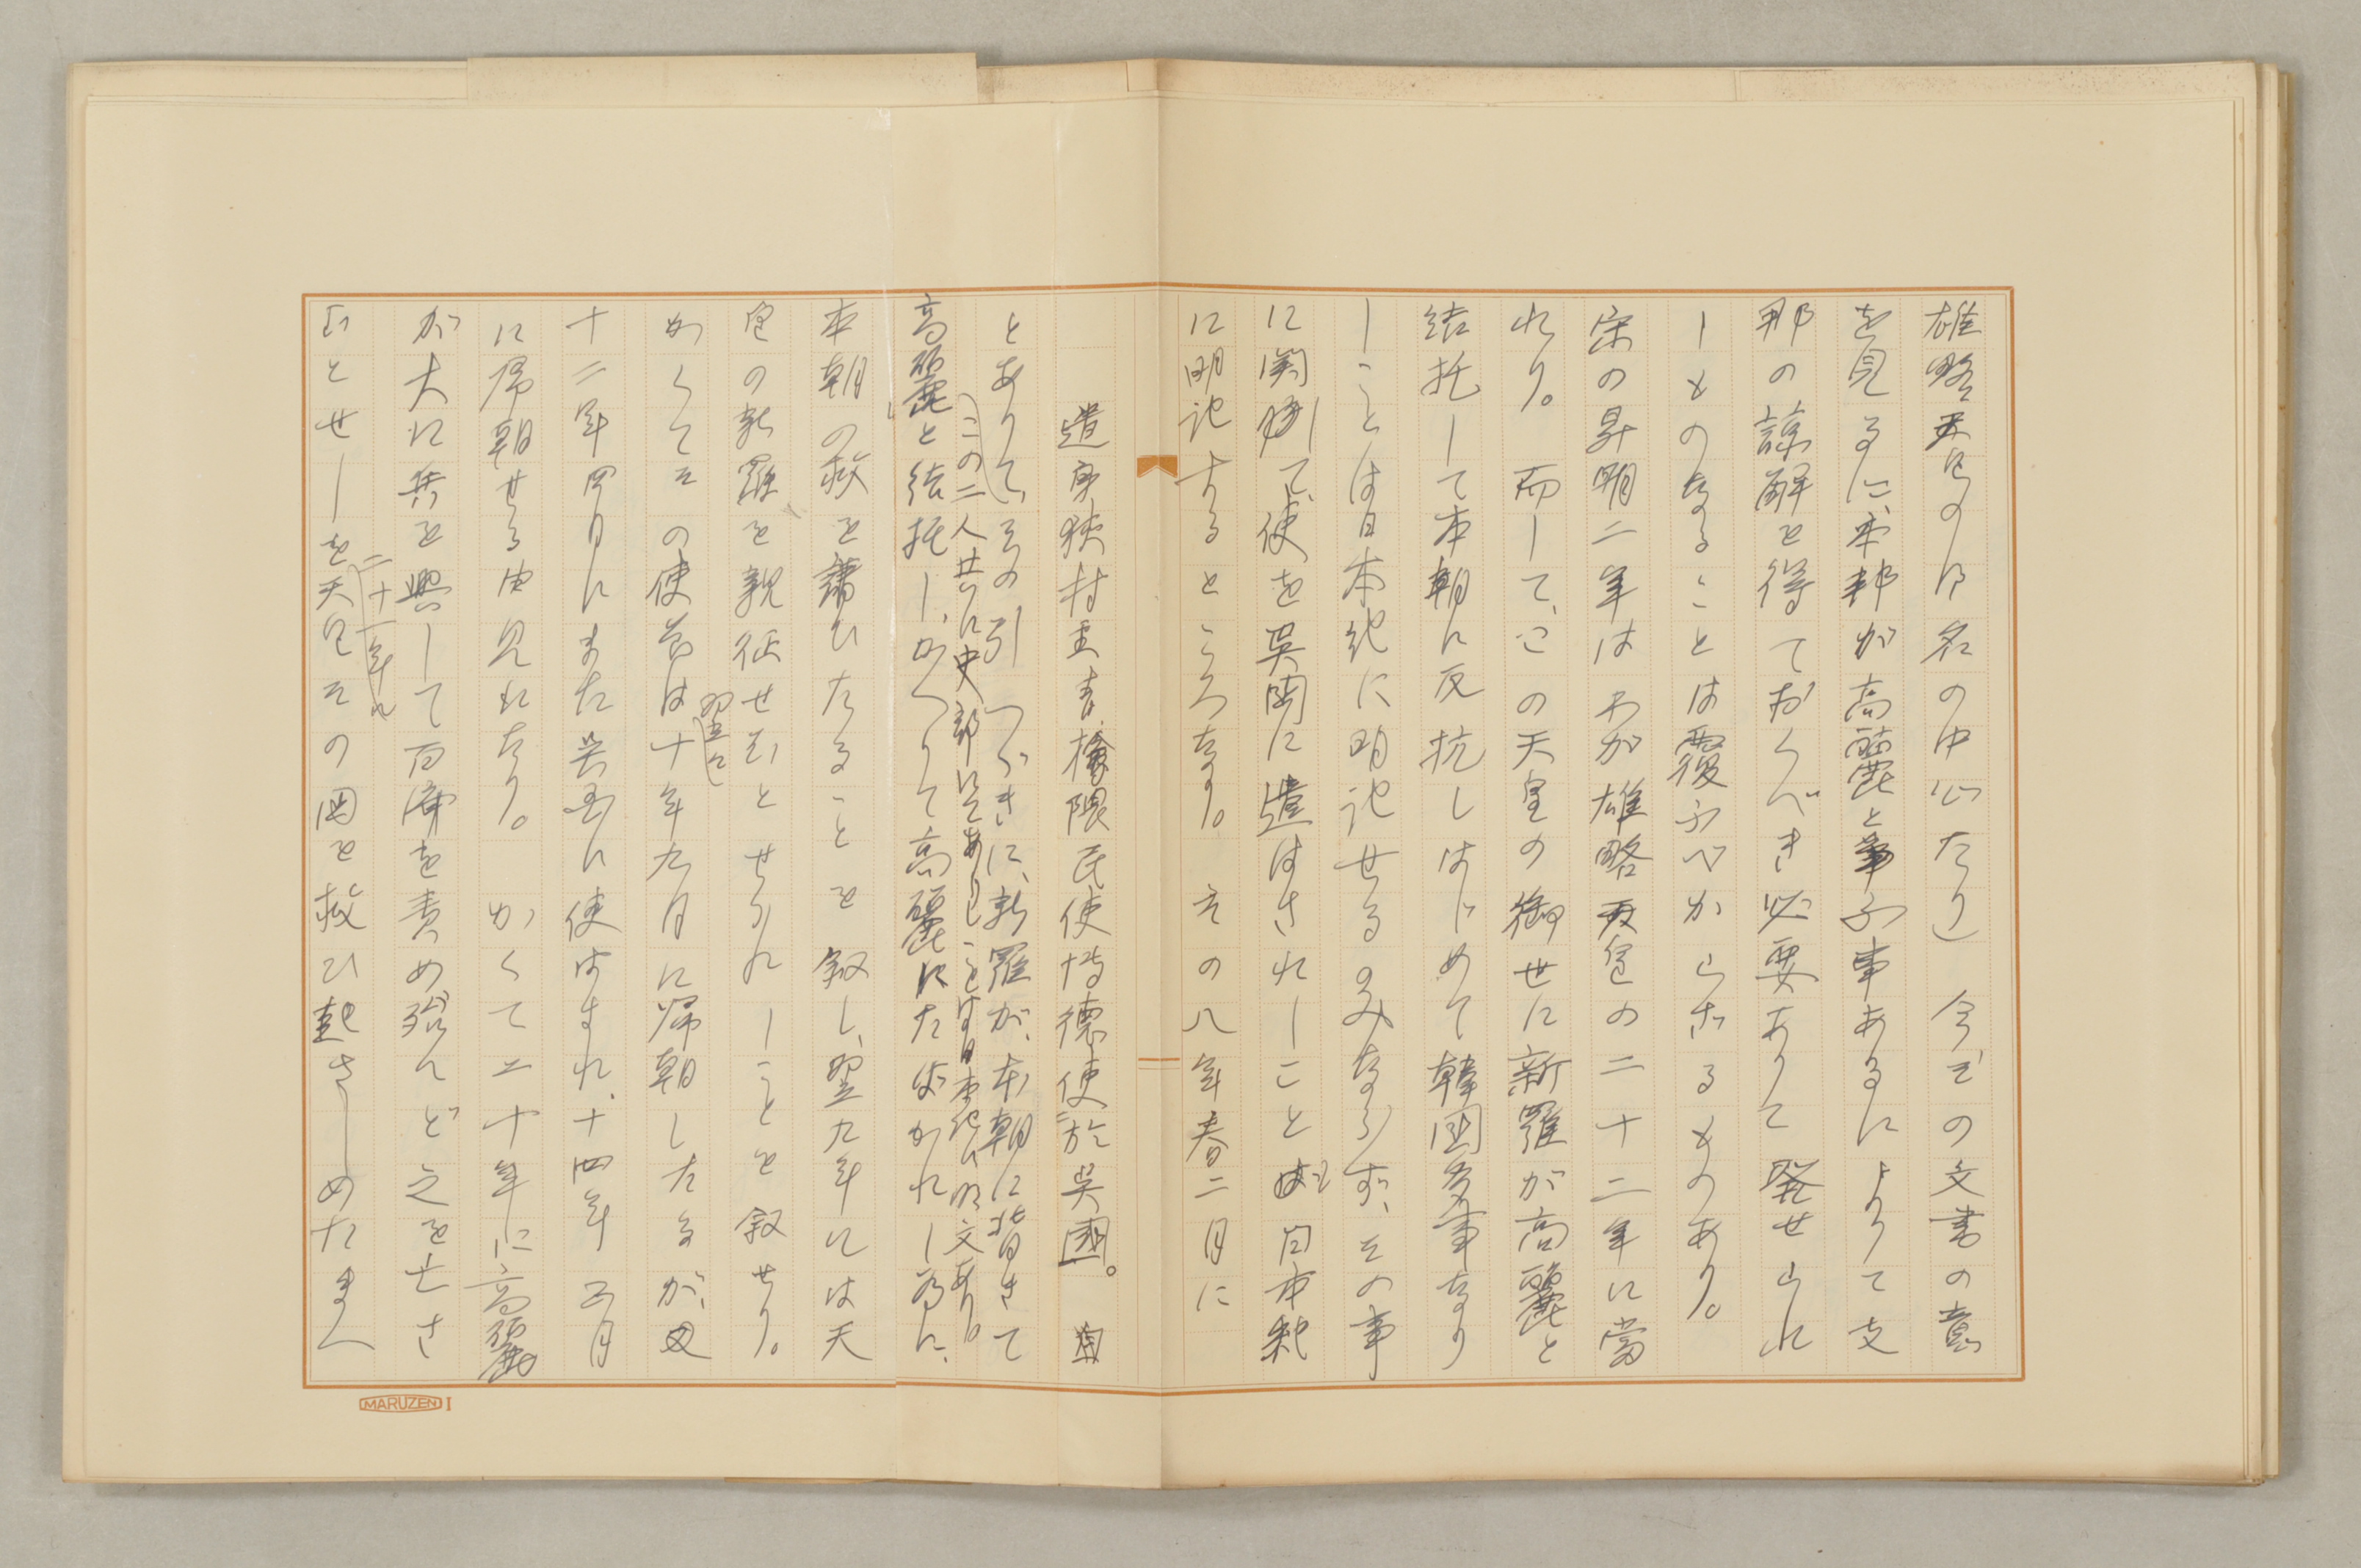 雄略天皇の御名の中心たり)今その文書の意
を見るに、本邦が高麗と爭ふ事あるによりて支
那の諒解を得ておくべき必要ありて発せられ
しものなることは覆ふべからざるものあり。
宋の昇明二年はわが雄略天皇の二十二年に當
れり。而して、この天皇の御世に新羅が高麗と
結托して本朝に反抗しはじめて韓国多事なり
しことは日本紀に明記せるのみならず、その事
に関して、使を呉国に遣はされしこと日本紀
に明記するところなり。その八年春二月に
遣身狹村主青檜隈民使博徳使於呉國。
とありて、その引つづきに、新羅が、本朝に背きて
(この二人共に史部にてありしことは日本紀に明文あり。
高麗と結托し、かへりて高麗にたばかれし為に、
本朝の救を請ひたることを叙し、翌九年には天
皇の新羅を親征せむとせられしことを叙せり。
かくてその使節は十年九月に帰朝したるが、又
翌々
十二年四月にまた呉国に使はすれ、十四年正月
に帰朝せる由見えたり。かくて二十年に高麗
が大に兵を興して百済を責め殆んど之を亡さ
二十一年に
むとせしを天皇その国を救ひ起さしめたまへ
MARUZEN I